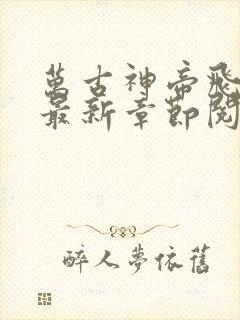 萬古神帝飛
最新章節閱
醉人夢依舊